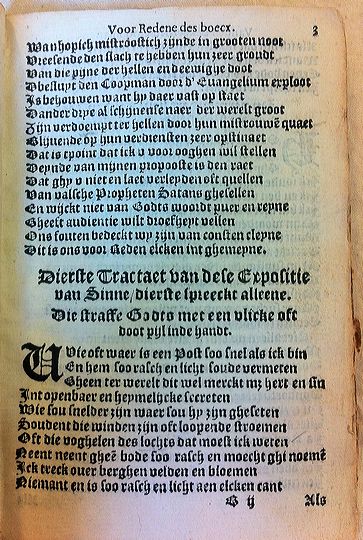 Voor Redene des boecx. 3
Wanhopich mistroostich zijnde in grooten noot
Vreesende den slach te hebben hun zeer groudt
Van die pyne der hellen en deewighe doot
Dbesluyt den Coopman door d'Euangelium exploot
Is behouwen want hy daer vast op staet
Dander drye al schijnense naer der werelt groot
Zijn verdoempt ter hellen door hun mistrouwē quaet
Blijuende op hun verdiensten zeer opstinaet
Dat is tpoint dat ick v voor ooghen wil stellen
Deynde van mijnen propooste is den raet
Dat ghy v niet en laet verleyden oft quellen
Van valsche Propheten Satans ghesellen
En wijckt niet van Godts woordt puer en reyne
Gheeft audientie wilt droefheyt vellen
Ons fouten bedeckt wy zijn van consten cleyne
Dit is ons voor Reden elcken int ghemeyne.
Dierste Tractaet van dese Expositie
van Sinne, dierste spreeckt alleene.
Die straffe Godts met een vlicke oft
doot pijl inde handt.
VVie oft waer is een Post soo snel als ick bin
En hem soo rasch en licht soude vermeten
Gheen ter werelt dit wel merckt mz hert en sin
Int openbaer en heymelijcke secreten
Wie sou snelder zijn waer sou hy zijn gheseten
Soudent die winden zijn oft loopende stroemen
Oft die voghelen des lochts dat moest ick weten
Neent neent gheē bode soo rasch en moecht ghi noemē
Ick treck ouer berghen velden en bloemen
Niemant en is soo rasch en licht aen elcken cant
B ij Als